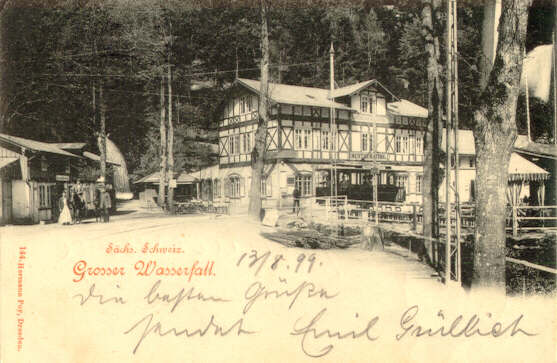 Sächs. Schweiz.
Grosser Wasserfall.
13/8. 99.
die besten Grüße
sendet Emil Grüllich
144. Hermann Poy, Dresden.